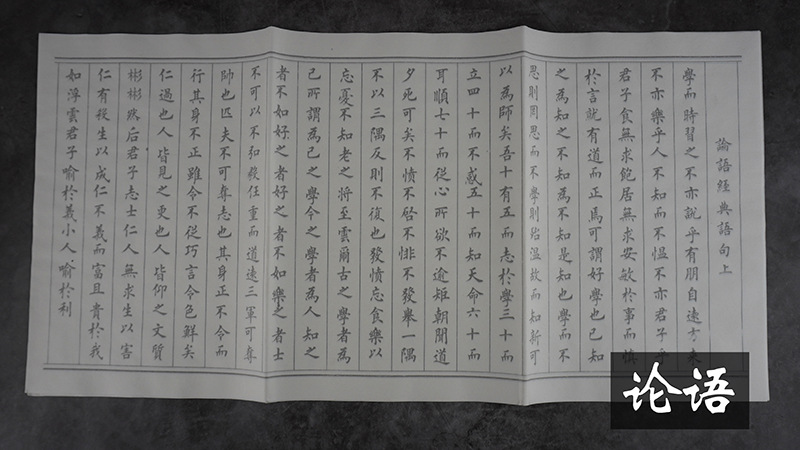 論語經典語句上
學而時習之不亦說乎有朋自遠方來
不亦樂乎人不知而不愠不亦君子乎
君子食無求飽居無求安敏於事而慎
於言就有道而正焉可謂好學也已知
之為知之不知為不知是知也學而不
思則罔思而不學則殆溫故而知新可
以為師矣吾十有五而志於學三十而
立四十而不惑五十而知天命六十而
耳順七十而從心所欲不逾矩朝聞道
夕死可矣不憤不啓不悱不發舉一隅
不以三隅反則不復也發憤忘食樂以
忘憂不知老之將至雲爾古之學者為
己所謂為己之學今之學者為人知之
者不如好之者好之者不如樂之者士
不可以不弘毅任重而道遠三軍可奪
帥也匹夫不可奪志也其身正不令而
行其身不正雖令不從巧言令色鮮矣
仁過也人皆見之更也人皆仰之文質
彬彬然后君子志士仁人無求生以害
仁有殺生以成仁不義而富且貴於我
如浮雲君子喻於義小人喻於利
论语